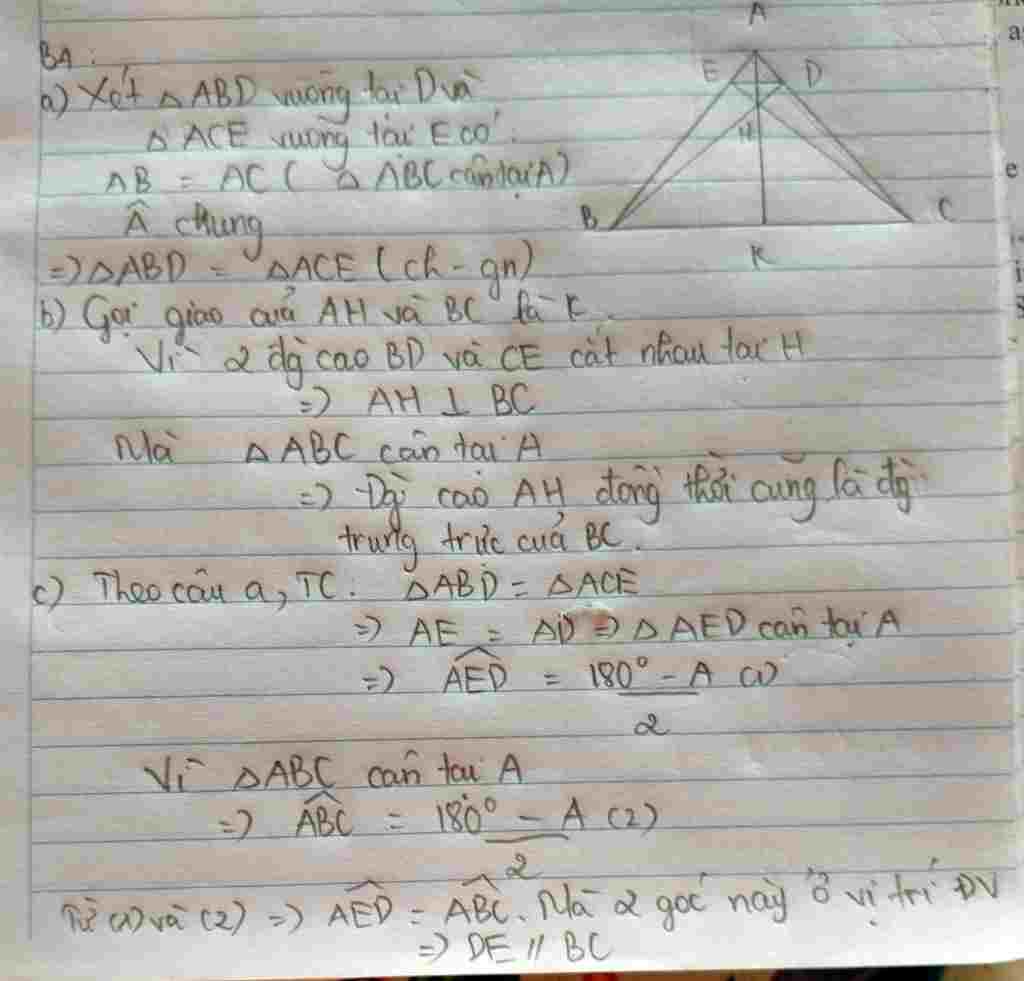 BA:
a) Xét △ ABD vuông tại D và
△ ACE vuông tại E có:
AB = AC ( △ ABC cân tại A)
Â chung
=> △ABD = △ACE (ch - gn)
b) Gọi giao của AH và BC là K.
Vì 2 đg cao BD và CE cắt nhau tại H
=> AH ⊥ BC
Mà △ ABC cân tại A
=> Đg cao AH đồng thời cũng là đg
trung trực của BC.
c) Theo câu a, TC: △ABD = △ACE
=> AE = AD => △ AED cân tại A
=> \widehat{AED} = \frac{180° - A}{2} (1)
Vì △ABC cân tại A
=> \widehat{ABC} = \frac{180° - A}{2} (2)
Từ (1) và (2) => \widehat{AED} = \widehat{ABC}. Mà 2 góc này ở vị trí ĐV
=> DE // BC
A
E
D
H
B
C
K